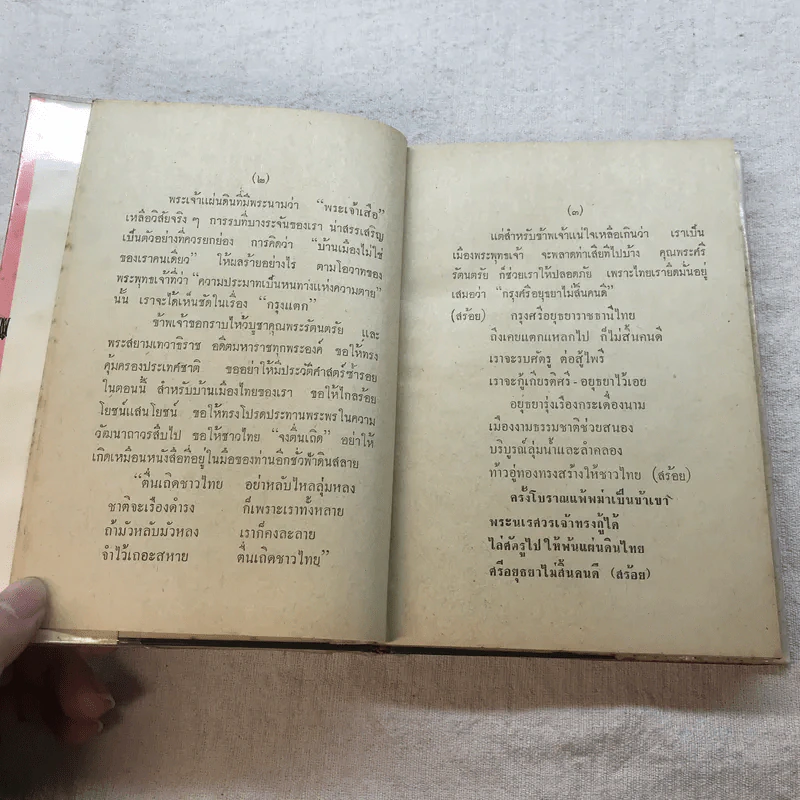 (๒)
พระเจ้าแผ่นดินที่มีพระนามว่า “พระเจ้าเสือ”
เหลือวิสัยจริง ๆ การรบที่บางระจันของเรา น่าสรรเสริญ
เป็นตัวอย่างที่ควรยกย่อง การคิดว่า “บ้านเมืองไม่ใช่
ของเราคนเดียว” ให้ผลร้ายอย่างไร ตามโอวาทของ
พระพุทธเจ้าที่ว่า “ความประมาทเป็นหนทางแห่งความตาย”
นั้น เราจะได้เห็นชัดในเรื่อง “กรุงแตก”
ข้าพเจ้าขอกราบไหว้บูชาคุณพระรัตนตรัย และ
พระสยามเทวาธิราช อดีตมหาราชทุกพระองค์ ขอให้ทรง
คุ้มครองประเทศชาติ ขออย่าให้มีประวัติศาสตร์ซ้ำรอย
ในตอนนี้ สำหรับบ้านเมืองไทยของเรา ขอให้ไกลร้อย
โยชน์แสนโยชน์ ขอให้ทรงโปรดประทานพระพรในความ
วัฒนาถาวรสืบไป ขอให้ชาวไทย “จงตื่นเถิด” อย่าให้
เกิดเหมือนหนังสือที่อยู่ในมือของท่านอีกชั่วฟ้าดินสลาย
“ตื่นเถิดชาวไทย อย่าหลับไหลลุ่มหลง
ชาติจะเรืองดำรง ก็เพราะเราทั้งหลาย
ถ้ามัวหลับมัวหลง เราก็คงละลาย
จำไว้เถอะสหาย ตื่นเถิดชาวไทย”
(๓)
แต่สำหรับข้าพเจ้าแน่ใจเหลือเกินว่า เราเป็น
เมืองพระพุทธเจ้า จะพลาดท่าเสียทีไปบ้าง คุณพระศรี
รัตนตรัย ก็ช่วยเราให้ปลอดภัย เพราะไทยเรายึดมั่นอยู่
เสมอว่า “กรุงศรีอยุธยาไม่สิ้นคนดี”
(สร้อย) กรุงศรีอยุธยาราชธานีไทย
ถึงเคยแตกแหลกไป ก็ไม่สิ้นคนดี
เราจะรบศัตรู ต่อสู้ไพรี
เราจะกู้เกียรติศรี - อยุธยาไว้เอย
อยุธยารุ่งเรืองกระเดื่องนาม
เมืองงามธรรมชาติช่วยสนอง
บริบูรณ์ลุ่มน้ำและลำคลอง
ท้าวอู่ทองทรงสร้างให้ชาวไทย (สร้อย)
ครั้งโบราณแพ้พม่าเป็นข้าเขา
พระนเรศวรเจ้าทรงกู้ได้
ไล่ศัตรูไป ให้พ้นแผ่นดินไทย
ศรีอยุธยาไม่สิ้นคนดี (สร้อย)